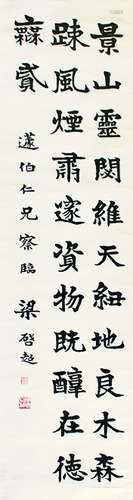 景山靈閟維天紐地良木森
踈風煙肅邃資物既醇在德
貳
邃伯仁兄察臨 梁啓超